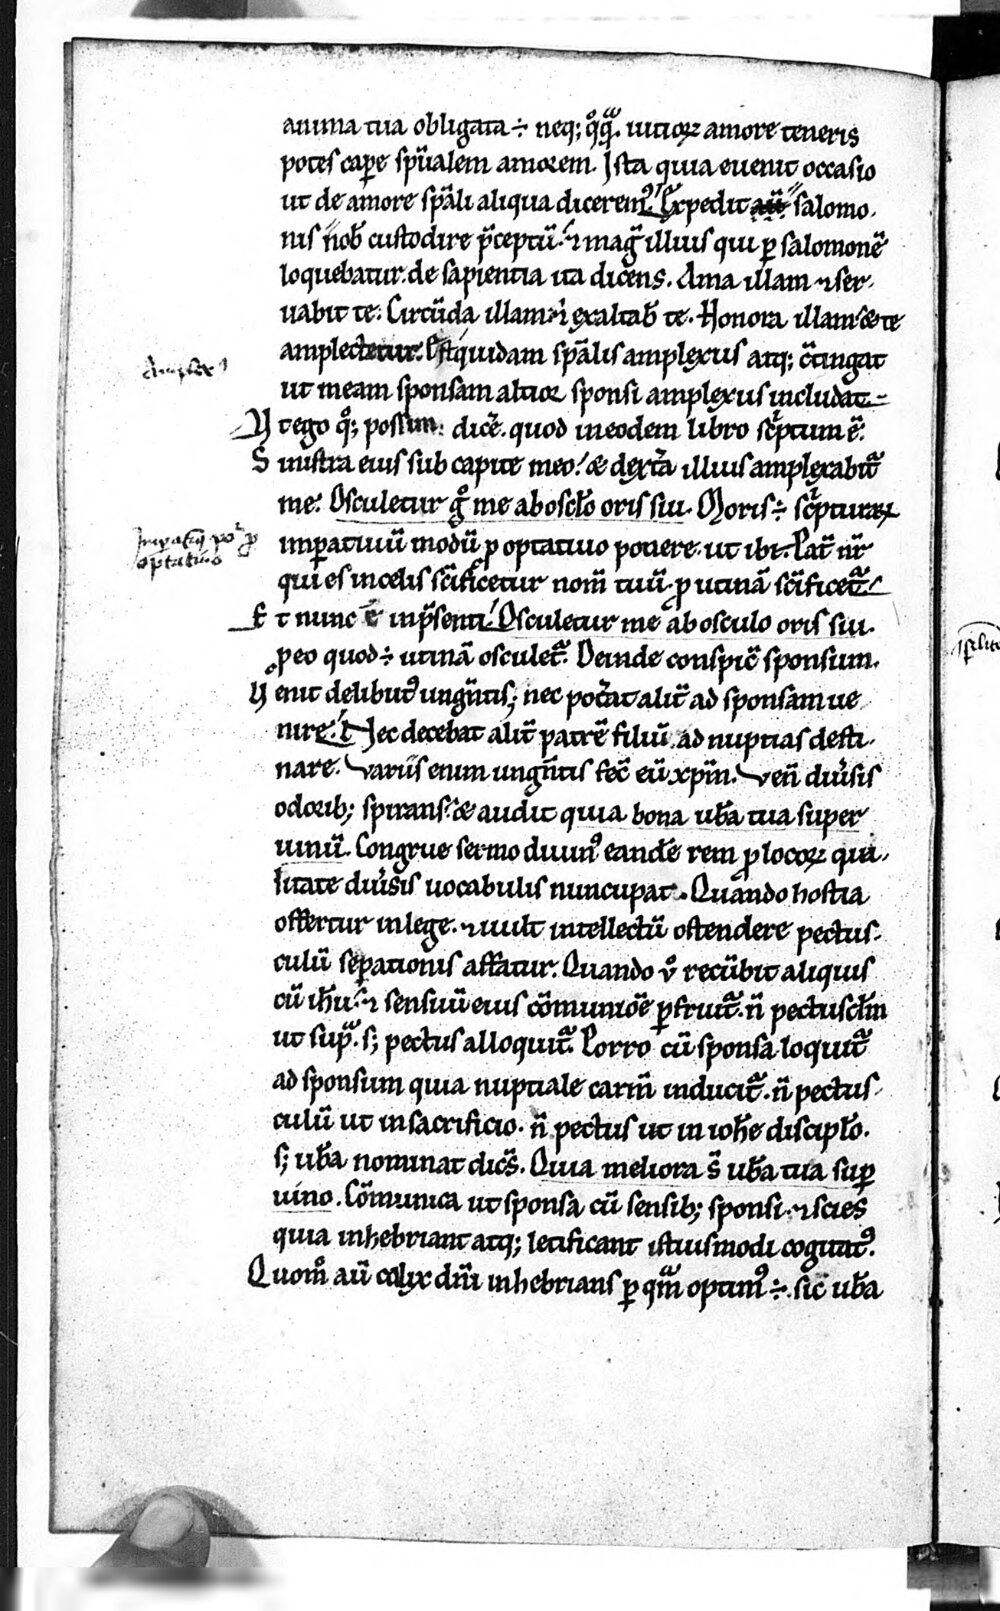 anima tua obligata ÷ neq; qͦqᷓ. uitioꝝ amore teneris
potes cap̄e spūalem amorem. Ista quia euenit occasio
ut de amore spāli aliqua dicerem⁹. Expedit salomo-
nis nob̄ custodire p̄ceptū. ⁊ mag̅ illius qui ꝑ salomonē
loquebatur. de sapientia ita dicens. Ama illam ⁊ ser-
uabit te. Circūda illam ⁊ exaltab̄ te. Honora illam & te
amplectetur. Est quidam spālis amplexus atq; c̄tingat
ut meam sponsam altior sponsi amplexus includat.
Vt ego qͦ; possim dic̄e. quod in eodem libro sc̍ptum ē.
Sinistra eius sub capite meo. & dext̄a illius amplexabit᷑
me. Osculetur gͦ me ab oscl̄o oris sui. Moris ÷ sc̍pturaꝝ
Amplex⁹
imꝑatiuū modū ꝓ optatiuo ponere. ut ibi. Pat̄ nr̄
Imꝑatiū po᷑ ꝓ
optatiuo
qui es in celis sc̄ificetur nom̄ tuū. ꝓ utinā sc̄ificet᷑.
Et nunc ē in p̄senti. Osculetur me ab osculo oris sui.
ꝓ eo quod ÷ utinā osculet᷑. Deinde conspic̄ sponsum.
Venit delibut⁹ ungn̄tis. nec pot̄at alit̄ ad sponsam ue-
nire. Nec decebat alit̄ patrē filiū ad nuptias desti-
nare. Variis enim ungn̄tis fec̄ eū xp̄m. Ven̄ diu̍sis
odorib; spirans. & audit quia bona ub̄a tua super
uinū. Congrue sermo diuin⁹ eandē rem ꝓ locoꝝ qua-
litate diu̍sis uocabulis nuncupat. Quando hostia
offertur in lege. ⁊ uult intellectū ostendere pectus-
culū sepationis affatur. Quando uͦ recūbit aliquis
cū ih̄u. ⁊ sensuū eius cōmunioē ꝑfruit᷑. n̄ pectuscl̄m
ut supᷓ. s; pectus alloquit᷑. Porro cū sponsa loquit᷑
ad sponsum quia nuptiale carm̄ inducit᷑. n̄ pectus-
culū ut in sacrificio. n̄ pectus ut in ioh̄e discipl̄o.
s; ub̄a nominat dic̄s. Quia meliora s̄ ub̄a tua suꝑ
uino. Cōmunica ut sponsa cū sensib; sponsi. ⁊ scies
quia inhebriant atq; letificant istiusmodi cogitat⁹.
Quom̊ aū calix dn̄i inhebrians ꝑ qᷓm optim⁹ ÷. sic ub̄a